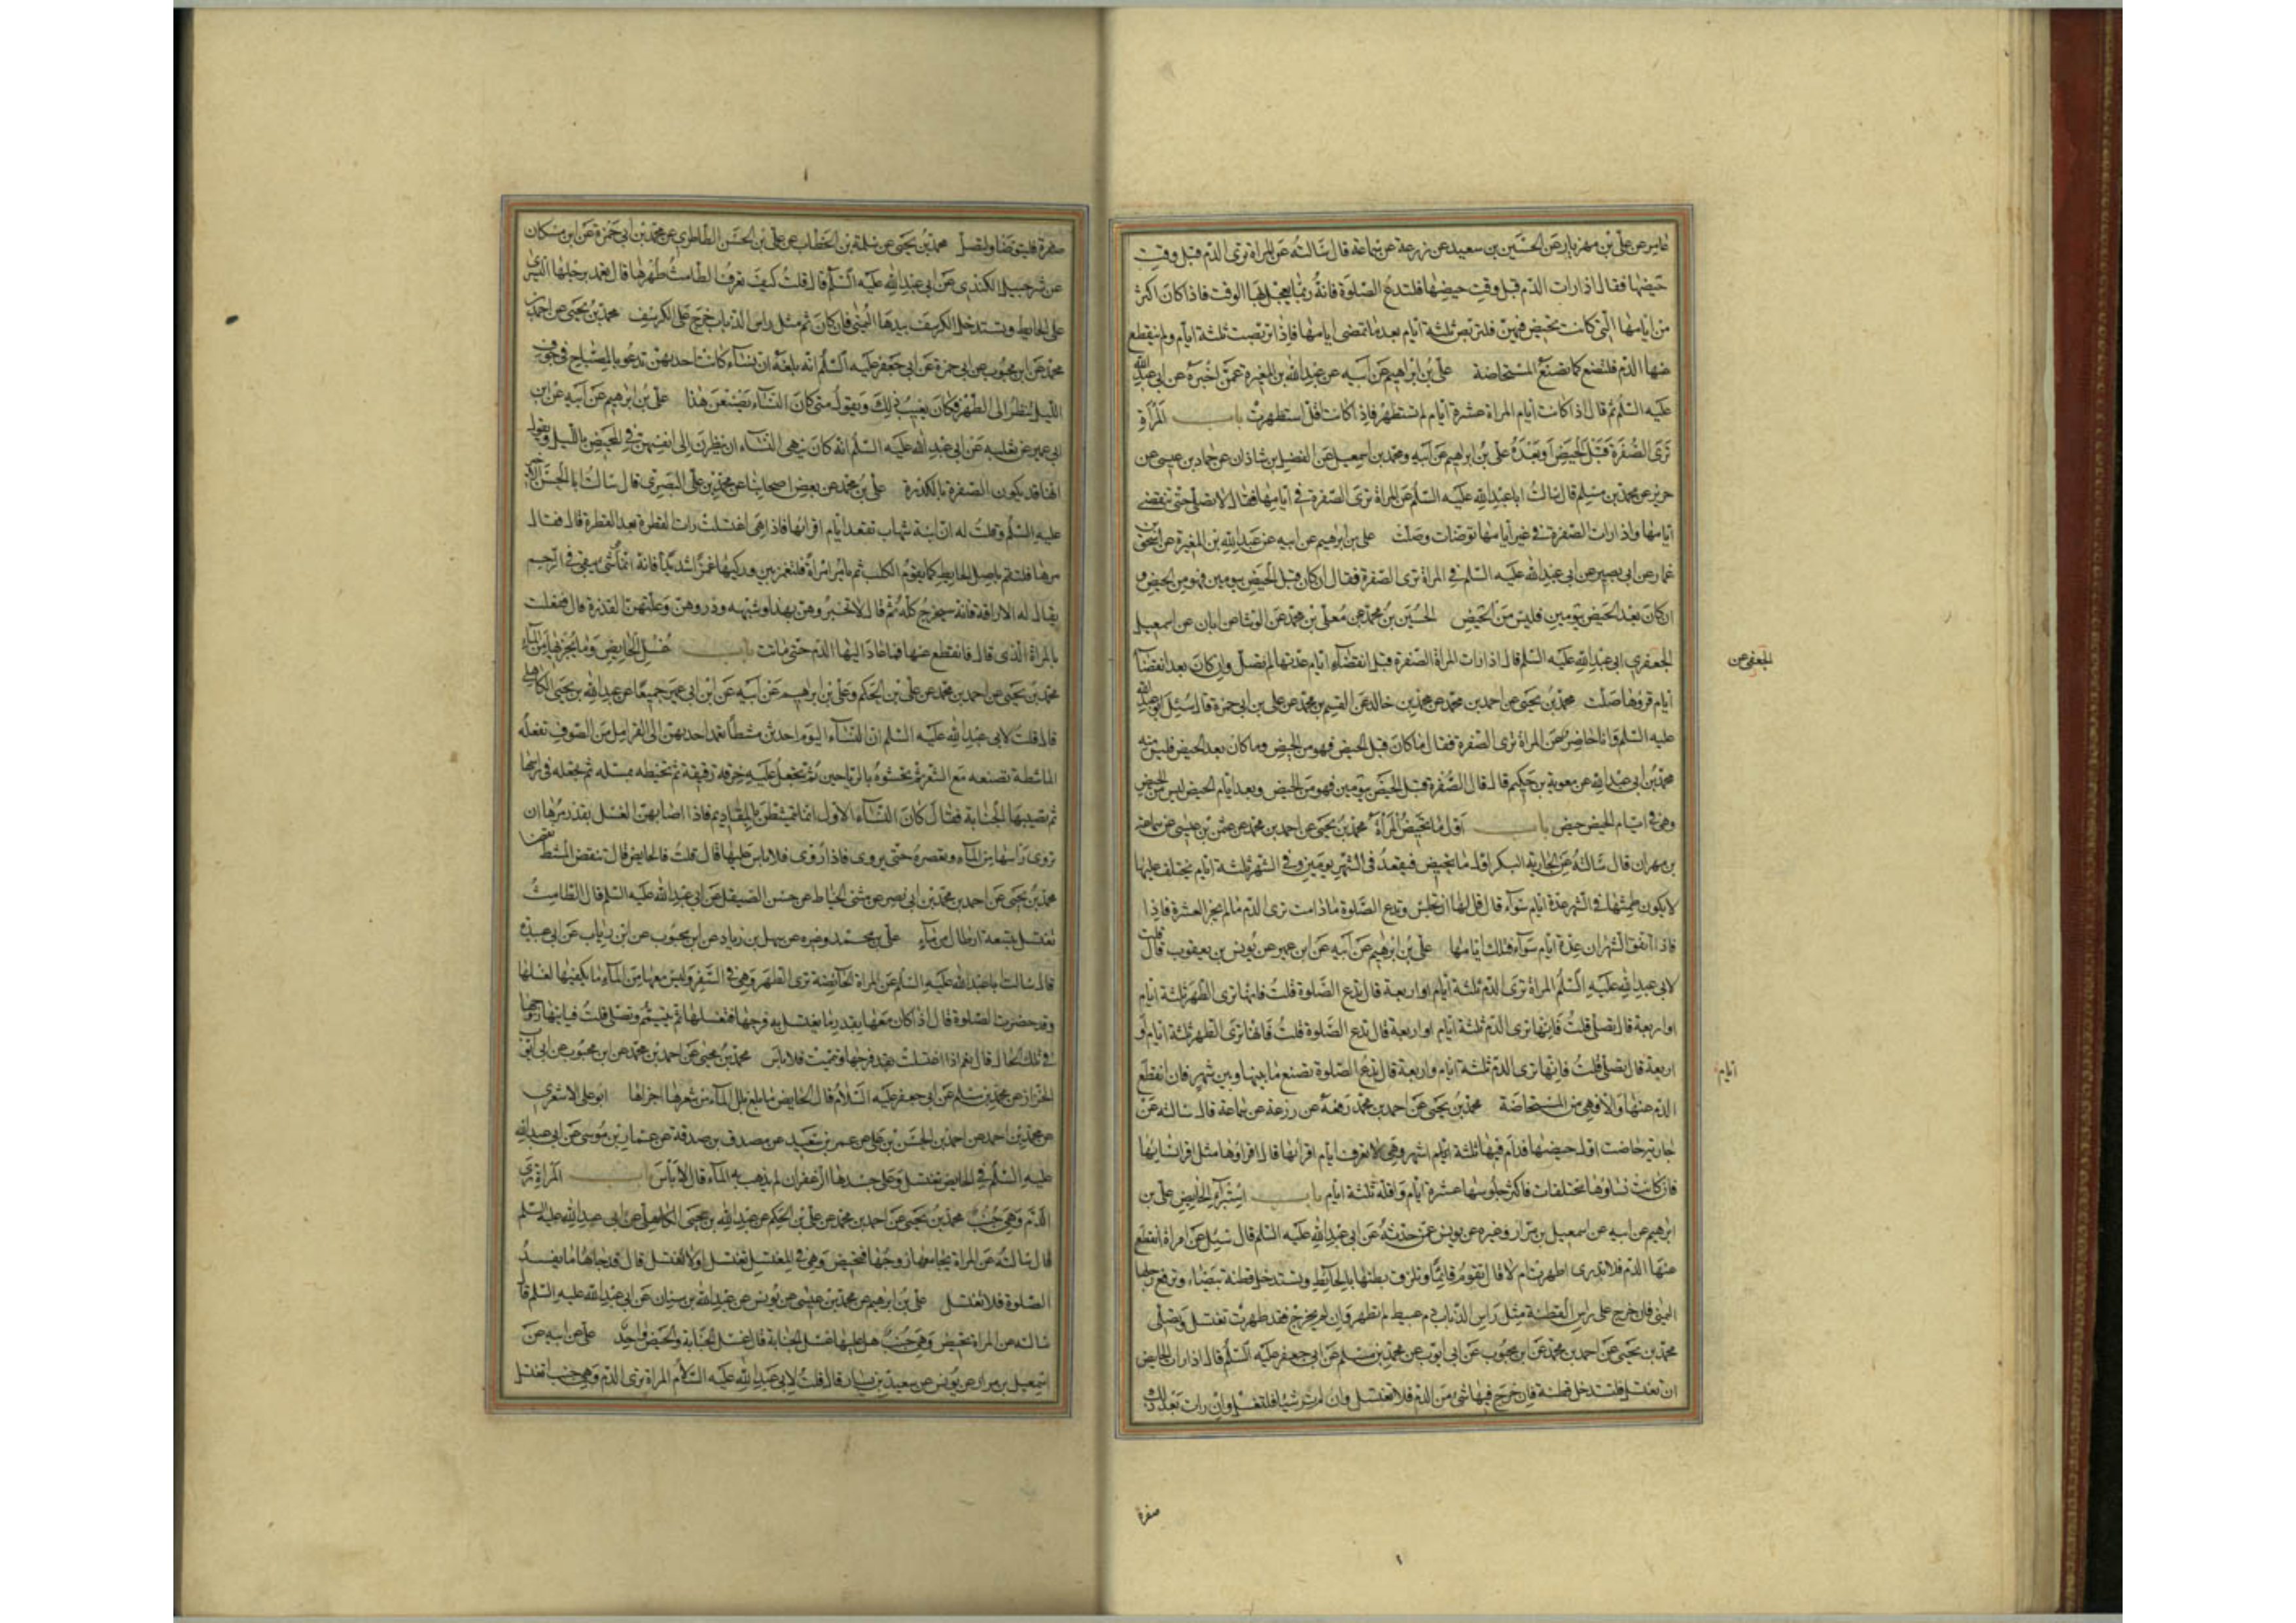 عامر عن علي بن مهزيار عن الحسين بن سعيد عن زرعة عن سماعة قال سالته عن المراة ترى الدم قبل وقت
حيضها فقال اذا رات الدم قبل وقت حيضها فلتدع الصلوة فانه ربما يعجل بها الوقت فاذا كان اكثر
من ايامها التي كانت تحيض فيهن فلتربص ثلثة ايام بعد ما تمضى ايامها فاذا تربصت ثلثة ايام ولم ينقطع
عنها الدم فلتصنع كما تصنع المستحاضة علي بن ابراهيم عن ابيه عن عبد الله بن المغيرة عمن اخبره عن ابي عبد الله
عليه السلم قال اذا كانت ايام المراة عشرة ايام لم تستظهر فاذا كانت اقل استظهرت باب المراة
ترى الصفرة قبل الحيض او بعده علي بن ابراهيم عن ابيه ومحمد بن اسمعيل عن الفضل بن شاذان عن حماد بن عيسى عن
حريز عن محمد بن مسلم قال سالت ابا عبد الله عليه السلم عن المراة ترى الصفرة في ايامها فقال لا تصلي حتى تنقضي
ايامها واذا رات الصفرة في غير ايامها توضات وصلت علي بن ابرهيم عن ابيه عن عبد الله بن المغيرة عن اسحق بن
عمار عن ابي بصير عن ابي عبد الله عليه السلم في المراة ترى الصفرة فقال ان كان قبل الحيض بيومين فهو من الحيض و
ان كان بعد الحيض بيومين فليس من الحيض الحسين بن محمد عن معلى بن محمد عن الوشا عن ابان عن اسمعيل
الجعفري ابي عبد الله عليه السلم قال اذا رات المراة الصفرة قبل انقضاء ايام عدتها لم تصل وان كان بعد انقضآ
الجعفي عن
ايام قروها صلت محمد بن يحيى عن احمد بن محمد عن محمد بن خالد عن القسم بن محمد عن علي بن ابي حمزة قال سئل ابو عبد الله
عليه السلم وانا حاضر عن المراة ترى الصفرة فقال ما كان قبل الحيض فهو من الحيض وما كان بعد الحيض فليس منه
محمد بن ابي عبد الله عن معوية بن حكيم قال قال الصفرة قبل الحيض بيومين فهو من الحيض وبعد ايام الحيض ليس من الحيض
وهي في ايام الحيض حيض باب اقل ما تحيض المراة محمد بن يحيى عن احمد بن محمد عن عثمن بن عيسى عن سماعة
بن مهران قال سالته عن الجارية البكر اول ما تحيض فيقعد في الشهر يومين وفي الشهر ثلثة ايام يختلف عليها
لا يكون طمثها في الشهر عدة ايام سواء قال فلها ان تجلس وتدع الصلوة ما دامت ترى الدم ما لم يجز العشرة فاذا
فاذا اتفق الشهران عدة ايام سواء فتلك ايامها علي بن ابرهيم عن ابيه عن ابن عمير عن يونس بن يعقوب قال قلت
لابي عبد الله عليه السلم المراة ترى الدم ثلثة ايام او اربعة قال تدع الصلوة قلت فانها ترى الطهر ثلثة ايام
او اربعة قال تصلي قلت فانها ترى الدم ثلثة ايام او اربعة قال تدع الصلوة قلت فانها ترى الطهر ثلثة ايام او
اربعة قال تصلي قلت فانها ترى الدم ثلثة ايام واربعة قال تدع الصلوة تصنع ما بينها وبين شهر فان انقطع
ايام
الدم عنها والا فهي من المستحاضة محمد بن يحيى عن احمد بن محمد رفعه عن زرعة عن سماعة قال سالته عن
جارية حاضت اول حيضها فدام فيها ثلثة ايام اشهر وهي لا تعرف ايام اقرائها قال اقراوها مثل اقراء نسائها
فان كانت نساؤها مختلفات فاكثر جلوسها عشرة ايام واقله ثلثة ايام باب استبراء الحايض علي بن
ابرهيم عن ابيه عن اسمعيل بن مرار وغيره عن يونس عمن حدثه عن ابي عبد الله عليه السلم قال سئل عن امراة انقطع
عنها الدم فلا تدرى اطهرت ام لا قال تقوم قائما وتلزق بطنها بالحائط وتستدخل قطنة بيضاء وترفع رجلها
اليمنى فان خرج على راس القطنة مثل راس الذباب دم عبيط لم تطهر وان لم يخرج فقد طهرت تغتسل وتصلى
محمد بن يحيى عن احمد بن محمد عن ابن محبوب عن ابي ايوب عن محمد بن مسلم عن ابي جعفر عليه السلم قال اذا ارادت الحايض
ان تغتسل فلتستدخل قطنة فان خرج فيها شئ من الدم فلا تغتسل وان لم تر شيئا فلتغتسل وان رات بعد ذلك
صفرة
صفرة فليتوضا ولتصل محمد بن يحيى عن سلمة بن الخطاب عن علي بن الحسن الطاطري عن محمد بن ابي حمزة عن ابن مسكان
عن شرحبيل الكندي عن ابي عبد الله عليه السلم قال قلت كيف تعرف الطامث طهرها قال تعمد برجلها اليسرى
على الحايط وتستدخل الكرسف بيدها اليمنى فان كان ثم مثل راس الذباب خرج على الكرسف محمد بن يحيى عن احمد بن
محمد عن ابن محبوب عن ابي حمزة عن ابي جعفر عليه السلم انه بلغه ان نساء كانت احديهن تدعو بالمصباح في جوف
الليل تنظر الى الطهر فكان يعيب ذلك ويقول متى كان النساء يصنعن هذا علي بن ابرهيم عن ابيه عن ابن
ابي عمير عن ثعلبه عن ابي عبد الله عليه السلم انه كان ينهى النساء ان ينظرن الى انفسهن في المحيض بالليل ويقول
انها قد يكون الصفرة والكدرة علي بن محمد عن بعض اصحابنا عن محمد بن علي البصرى قال سالت ابا الحسن الاخير
عليه السلم وقلت له ان ابنة شهاب تقعد ايام اقرائها فاذا هي اغتسلت رات القطرة بعد القطرة قال فقال
مرها فلتقم باصل الحايط كما يقوم الكلب ثم تامر امراة فلتغمز بين وركيها غمزا شديدا فانه انما شئ يبقى في الرحم
يقال له الاراقة فانه سيخرج كله ثم قال لا تخبروهن بهذا وشبهه وذروهن وعلتهن القذرة قال ففعلت
بالمراة الذى قال فانقطع عنها فما عاد اليها الدم حتى ماتت باب غسل الحايض وما يجزيها من الماء
محمد بن يحيى عن احمد بن محمد عن علي بن الحكم وعلي بن ابراهيم عن ابيه عن ابن ابي عمير جميعا عن عبد الله بن يحيى الكاهلي
قال قلت لابي عبد الله عليه السلم ان النساء اليوم احدثن مشطا تعمد احديهن الى القرامل من الصوف تفعله
الماشطة تصنعه مع الشعر ثم تحشوه بالرياحين ثم تجعل عليه خرقة رقيقة ثم تخيطه بمسله ثم يجعله في راسها
ثم تصيبها الجنابة فقال كان النساء الاول انما تمتشطن المقاديم فاذا اصابهن الغسل بقذر مرها ان
تروى راسها من الماء وتعصره حتى يروى فاذا روى فلا باس عليها قال قلت فالحايض قال تنقض المشط نقضا
محمد بن يحيى عن احمد بن محمد بن ابي نصر عن مثنى الحناط عن حسن الصيقل عن ابي عبد الله عليه السلم قال الطامث
تغتسل بتسعة ارطال من ماء علي بن محمد وغيره عن سهل بن زياد عن ابن محبوب عن ابن رئاب عن ابي عبيدة
قال سالت ابا عبد الله عليه السلم عن المراة الحائضة ترى الطهر وهي في السفر وليس معها من الماء ما يكفيها لغسلها
وقد حضرت الصلوة قال اذا كان معها بقدر ما تغتسل به فرجها فتغسلها ثم تتيمم وتصلي قلت فياتيها زوجها
في تلك الحال قال نعم اذا اغتسلت فرجها وتيممت فلا باس محمد بن يحيى عن احمد بن محمد عن ابن محبوب عن ابي ايوب
الخزاز عن محمد بن مسلم عن ابي جعفر عليه السلام قال الحايض ما بلغ بلل الماء من شعرها اجزاها ابو علي الاشعري
عن محمد بن احمد عن احمد بن الحسن بن علي عن عمرو بن سعيد عن مصدق بن صدقة عن عمار بن موسى عن ابي عبد الله
عليه السلم في الحايض تغتسل وعلى جسدها الزعفران لم يذهب به الماء قال لا باس باب المراة ترى
الدم وهي جنب محمد بن يحيى عن احمد بن محمد عن علي بن الحكم عن عبد الله بن يحيى الكاهلي عن ابي عبد الله عليه السلم
قال سالته عن المراة يجامعها زوجها فتحيض وهي في المغتسل تغتسل او لا تغتسل قال قد جاءها ما يفسد
الصلوة فلا تغتسل علي بن ابرهيم عن محمد بن عيسى عن يونس عن عبد الله بن سنان عن ابي عبد الله عليه السلم قال
سالته عن المراة تحيض وهي جنب هل عليها غسل الجنابة قال غسل الجنابة والحيض واحد علي عن ابيه عن
اسمعيل بن مرار عن يونس عن سعيد بن يسار قال قلت لابي عبد الله عليه السلام المراة ترى الدم وهي جنب اتغتسل